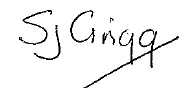 SJ Grigg